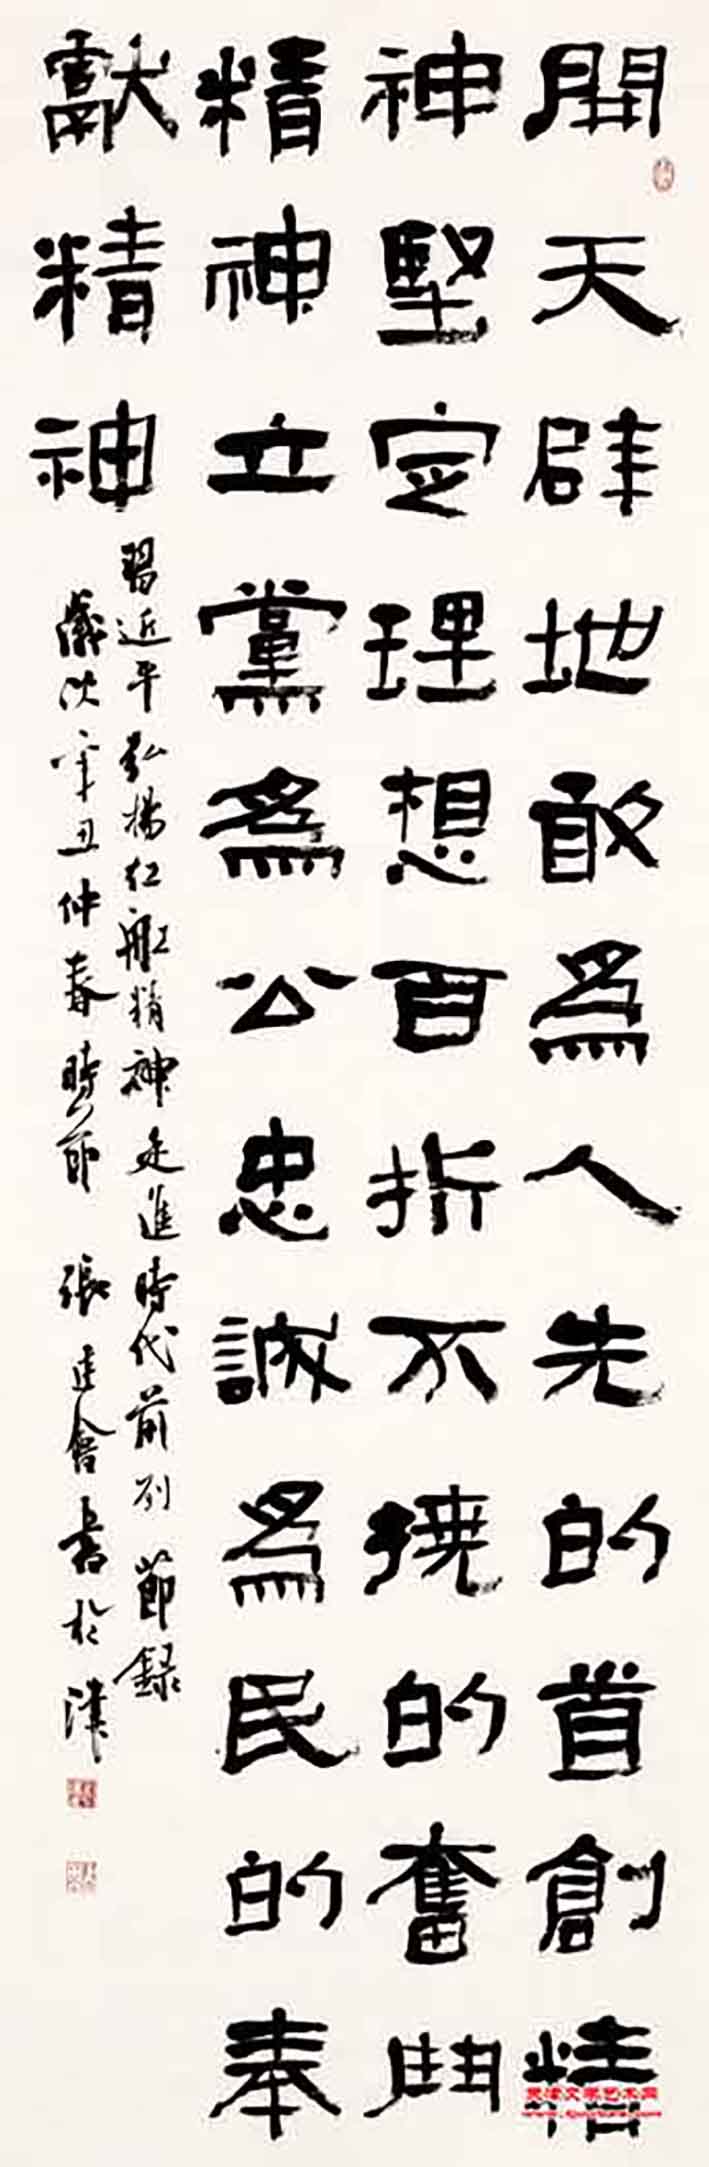 開天辟地敢為人先的首創精
神堅定理想百折不撓的奮鬥
精神立黨為公忠誠為民的奉
獻精神
習近平弘揚紅船精神走進時代前列節録
歲次辛丑仲春時節張建會書於津
天津文学艺术网